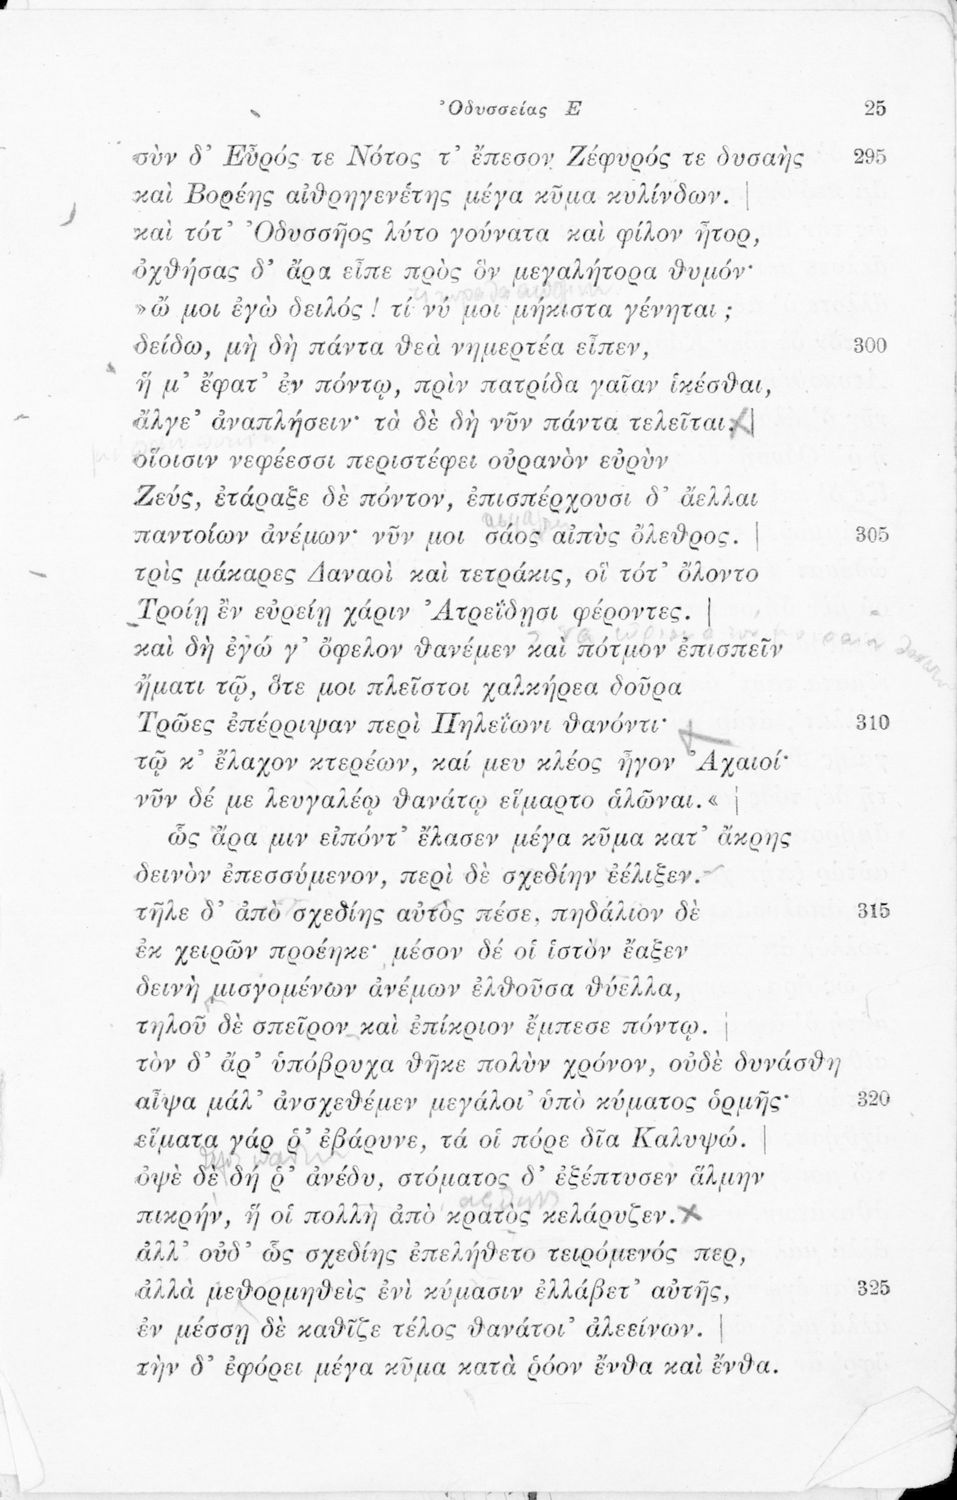 Ὀδυσσείας Ε 25
σὺν δ’ Εὖρός τε Νότος τ’ ἔπεσον Ζέφυρός τε δυσαὴς 295
καὶ Βορέης αἰθρηγενέτης μέγα κῦμα κυλίνδων.
καὶ τότ’ Ὀδυσσῆος λύτο γούνατα καὶ φίλον ἦτορ,
ὀχθήσας δ’ ἄρα εἶπε πρὸς ὃν μεγαλήτορα θυμόν·
»ὤ μοι ἐγὼ δειλός! τί νύ μοι μήκιστα γένηται;
δείδω, μὴ δὴ πάντα θεὰ νημερτέα εἶπεν, 300
ἥ μ’ ἔφατ’ ἐν πόντῳ, πρὶν πατρίδα γαῖαν ἱκέσθαι,
ἄλγε’ ἀναπλήσειν· τὰ δὲ δὴ νῦν πάντα τελεῖται.
οἵοισιν νεφέεσσι περιστέφει οὐρανὸν εὐρὺν
Ζεύς, ἐτάραξε δὲ πόντον, ἐπισπέρχουσι δ’ ἄελλαι
παντοίων ἀνέμων· νῦν μοι σάος αἰπὺς ὄλεθρος. 305
τρὶς μάκαρες Δαναοὶ καὶ τετράκις, οἳ τότ’ ὄλοντο
Τροίῃ ἐν εὐρείῃ χάριν Ἀτρεΐδῃσι φέροντες.
καὶ δὴ ἐγώ γ’ ὄφελον θανέμεν καὶ πότμον ἐπισπεῖν
ἤματι τῷ, ὅτε μοι πλεῖστοι χαλκήρεα δοῦρα
Τρῶες ἐπέρριψαν περὶ Πηλεΐωνι θανόντι· 310
τῷ κ’ ἔλαχον κτερέων, καί μευ κλέος ἦγον Ἀχαιοί·
νῦν δέ με λευγαλέῳ θανάτῳ εἵμαρτο ἁλῶναι.«
ὣς ἄρα μιν εἰπόντ’ ἔλασεν μέγα κῦμα κατ’ ἄκρης
δεινὸν ἐπεσσύμενον, περὶ δὲ σχεδίην ἐέλιξεν.
τῆλε δ’ ἀπὸ σχεδίης αὐτὸς πέσε, πηδάλιον δὲ 315
ἐκ χειρῶν προέηκε· μέσον δέ οἱ ἱστὸν ἔαξεν
δεινὴ μισγομένων ἀνέμων ἐλθοῦσα θύελλα,
τηλοῦ δὲ σπεῖρον καὶ ἐπίκριον ἔμπεσε πόντῳ.
τὸν δ’ ἄρ’ ὑπόβρυχα θῆκε πολὺν χρόνον, οὐδὲ δυνάσθη
αἶψα μάλ’ ἀνσχεθέμεν μεγάλοι’ ὑπὸ κύματος ὁρμῆς· 320
εἵματα γάρ ῥ’ ἐβάρυνε, τά οἱ πόρε δῖα Καλυψώ.
ὀψὲ δὲ δή ῥ’ ἀνέδυ, στόματος δ’ ἐξέπτυσεν ἅλμην
πικρήν, ἥ οἱ πολλὴ ἀπὸ κρατὸς κελάρυζεν.
ἀλλ’ οὐδ’ ὣς σχεδίης ἐπελήθετο τειρόμενός περ,
ἀλλὰ μεθορμηθεὶς ἐνὶ κύμασιν ἐλλάβετ’ αὐτῆς, 325
ἐν μέσσῃ δὲ καθῖζε τέλος θανάτοι’ ἀλεείνων.
τὴν δ’ ἐφόρει μέγα κῦμα κατὰ ῥόον ἔνθα καὶ ἔνθα.